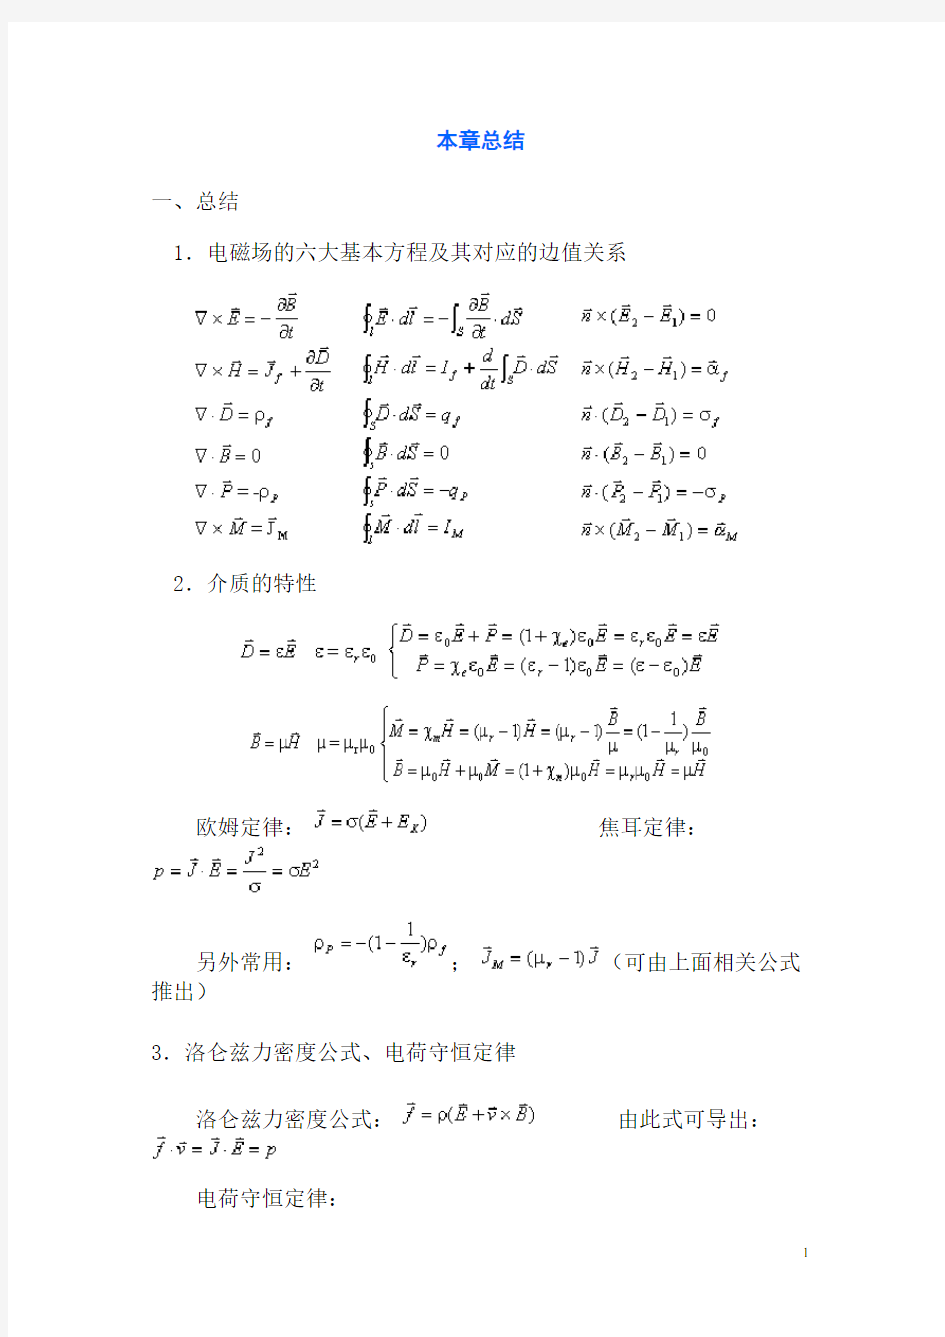 本章总结
一、总结
1．电磁场的六大基本方程及其对应的边值关系
∇×E⃗=−∂B⃗/∂t ∮_l E⃗·dl⃗=−∫_S ∂B⃗/∂t·dS⃗ n⃗×(E⃗₂−E⃗₁)=0
∇×H⃗=J⃗_f+∂D⃗/∂t ∮_l H⃗·dl⃗=I_f+d/dt∫_S D⃗·dS⃗ n⃗×(H⃗₂−H⃗₁)=α⃗_f
∇·D⃗=ρ_f ∮_S D⃗·dS⃗=q_f n⃗·(D⃗₂−D⃗₁)=σ_f
∇·B⃗=0 ∮_s B⃗·dS⃗=0 n⃗·(B⃗₂−B⃗₁)=0
∇·P⃗=-ρ_P ∮_s P⃗·dS⃗=−q_P n⃗·(P⃗₂−P⃗₁)=−σ_P
∇×M⃗=J⃗_M ∮_l M⃗·dl⃗=I_M n⃗×(M⃗₂−M⃗₁)=α⃗_M
2．介质的特性
D⃗=εE⃗ ε=ε_rε₀ { D⃗=ε₀E⃗+P⃗=(1+χ_e)ε₀E⃗=ε_rε₀E⃗=εE⃗
P⃗=χ_eε₀E⃗=(ε_r−1)ε₀E⃗=(ε−ε₀)E⃗
B⃗=μH⃗ μ=μ_rμ₀ { M⃗=χ_mH⃗=(μ_r−1)H⃗=(μ_r−1)B⃗/μ=(1−1/μ_r)B⃗/μ₀
B⃗=μ₀H⃗+μ₀M⃗=(1+χ_m)μ₀H⃗=μ_rμ₀H⃗=μH⃗
欧姆定律： J⃗=σ(E⃗+E⃗_K) 焦耳定律：
p=J⃗·E⃗=J²/σ=σE²
另外常用： ρ_P=−(1−1/ε_r)ρ_f ； J⃗_M=(μ_r−1)J⃗ （可由上面相关公式
推出）
3．洛仑兹力密度公式、电荷守恒定律
洛仑兹力密度公式： f⃗=ρ(E⃗+v⃗×B⃗) 由此式可导出：
f⃗·v⃗=J⃗·E⃗=p
电荷守恒定律：
1